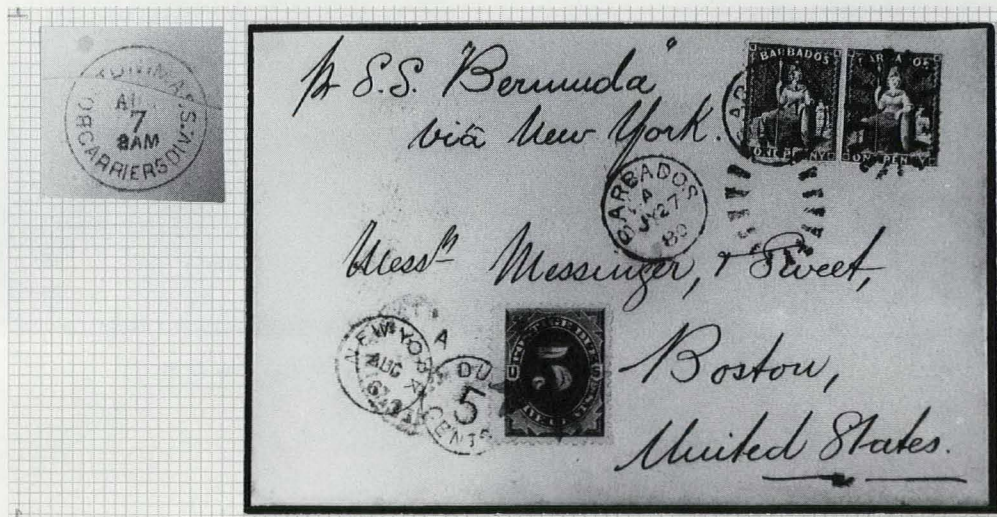 7
8AM
CARRIERS DIV.
p S.S. "Bermuda"
via New York.
BARBADOS
ONE PENNY
ONE PENNY
BARBADOS
A
JY 27
80
Messrs Messenger, & Sweet,
Boston,
United States.
NEW YORK
AUG
A
DUE
5
CENTS
5